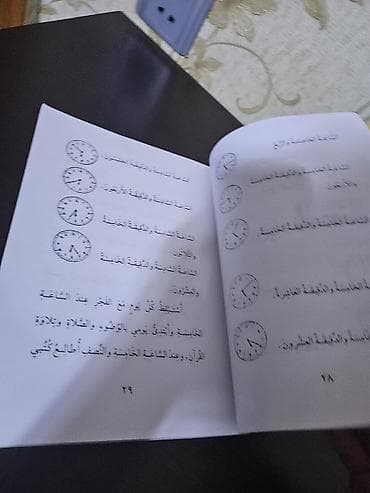 الساعة الخامسة والربع
الساعة الخامسة والدقيقة الخامسة
والأربعون
الساعة الخامسة والدقيقة الخامسة.
الخامسة والدقيقة العاشرة.
والدقيقة العشرون.
٢٨
الساعة السادسة والدقيقة العشرون.
الساعة السادسة والدقيقة الأربعون.
الساعة السادسة والدقيقة الخامسة
والثلاثون
الساعة الخامسة والدقيقة الخامسة
والعشرون.
أستيقظ كل يوم مع الفجر عند الساعة
الخامسة وأبتدئ يومي بالوضوء والصلاة وتلاوة
القرآن، وعند الساعة الخامسة والنصف أطالع كتبي
٢٩